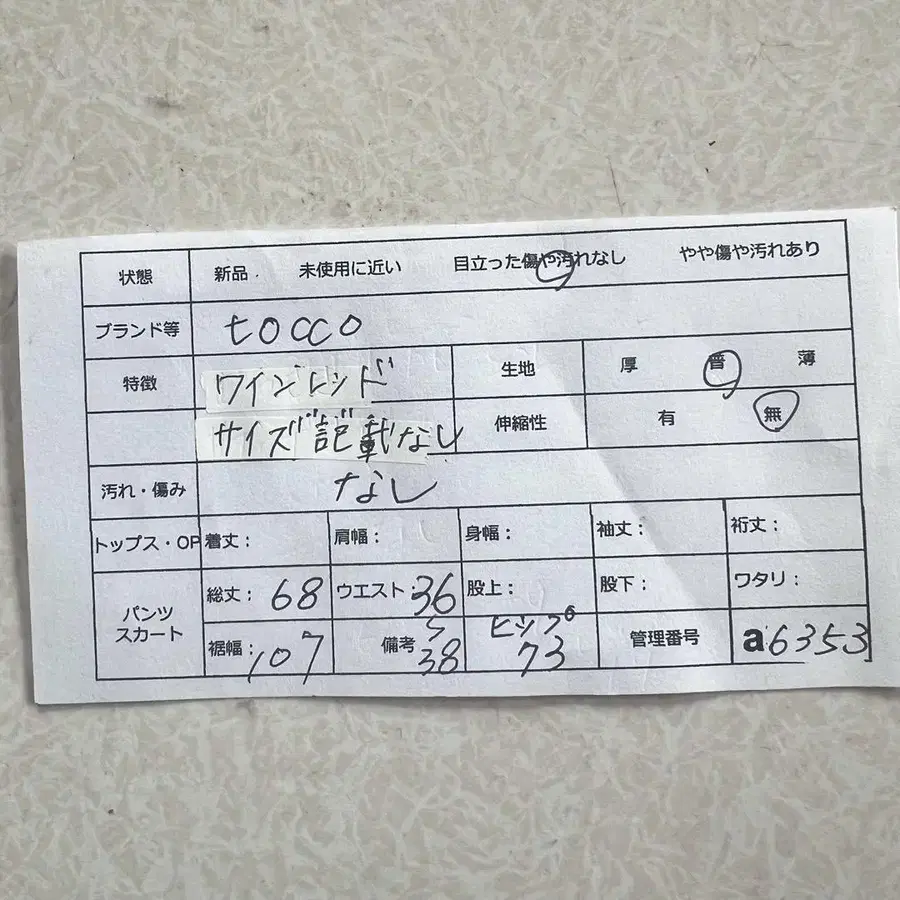 状態 新品 未使用に近い 目立った傷や汚れなし やや傷や汚れあり
ブランド等 tocco
特徴 ワインレッド 生地 厚 普 薄
サイズ記載なし 伸縮性 有 無
汚れ・傷み なし
トップス・OP 着丈： 肩幅： 身幅： 袖丈： 裄丈：
パンツ
スカート
総丈： 68 ウエスト： 36 股上： 股下： ワタリ：
裾幅： 107 備考 〜38 ヒップ 73 管理番号 a6353